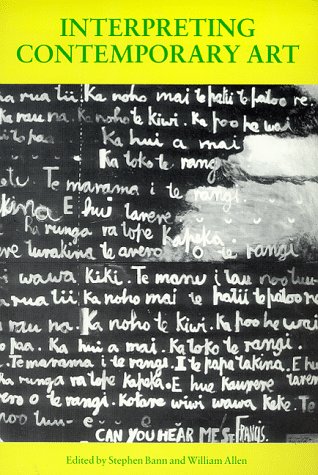 INTERPRETING
CONTEMPORARY ART
a rua tii. Ka noho mai te patii te patoo re.
rau na. Ka noho te kiwi. Ka poo he wai
Ka hui a mai
Ka toko te rangi
Te marama i te rangi.
E hui
ka runga ra tope kapeka
te o te rangi
i wawa kiki. Te manu i tau noo
a rua tii Ka noho mai te patii te patoo ro
rau na Ka noho te kiwi. Ka poo he wai
paa. Ka hui a mai. Ka toko te rangi.
Te marama i te rangi. I te papa takina. E hui
ka runga ra tope kapeka. E hue kaurere tarero
o te rangi. Kotare wiwi wawa keke. Te
CAN YOU HEAR ME ST FRANCIS.
Edited by Stephen Bann and William Allen